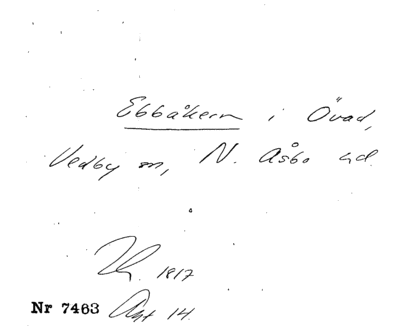 Ebbåkern i Övad,
Vedby sn, N. Åsbo hd.
1817
Nr 7463 Akt 14.